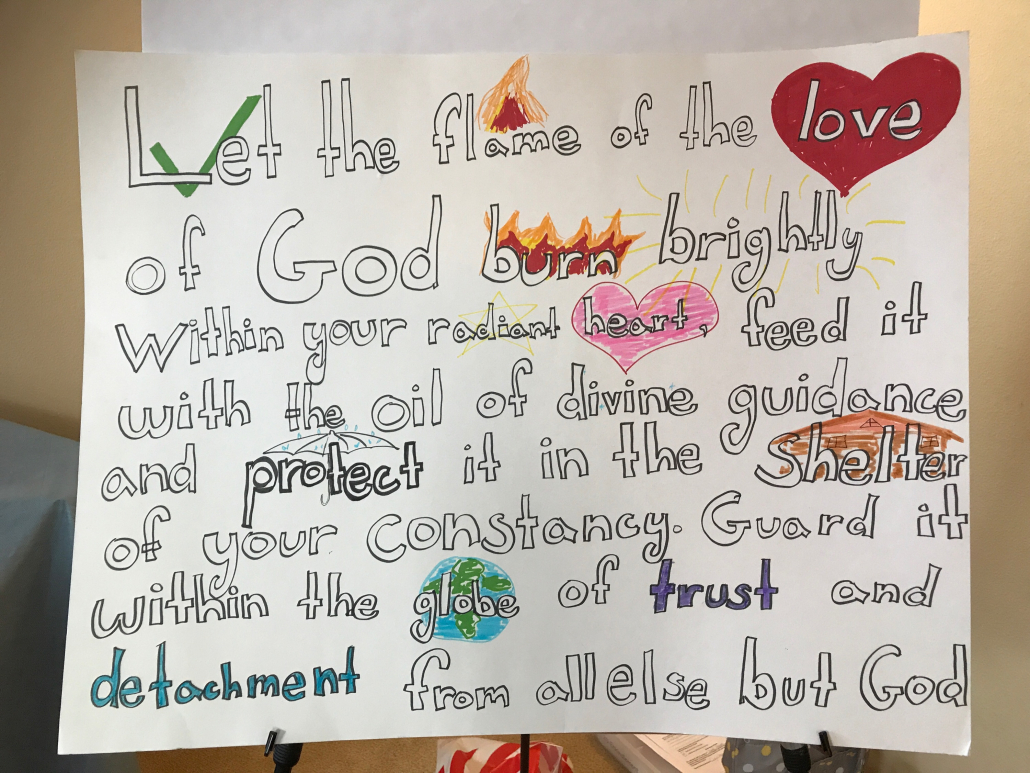 Let the flame of the love
of God burn brightly
within your radiant heart, feed it
with the oil of divine guidance
and protect it in the shelter
of your constancy. Guard it
within the globe of trust and
detachment from all else but God